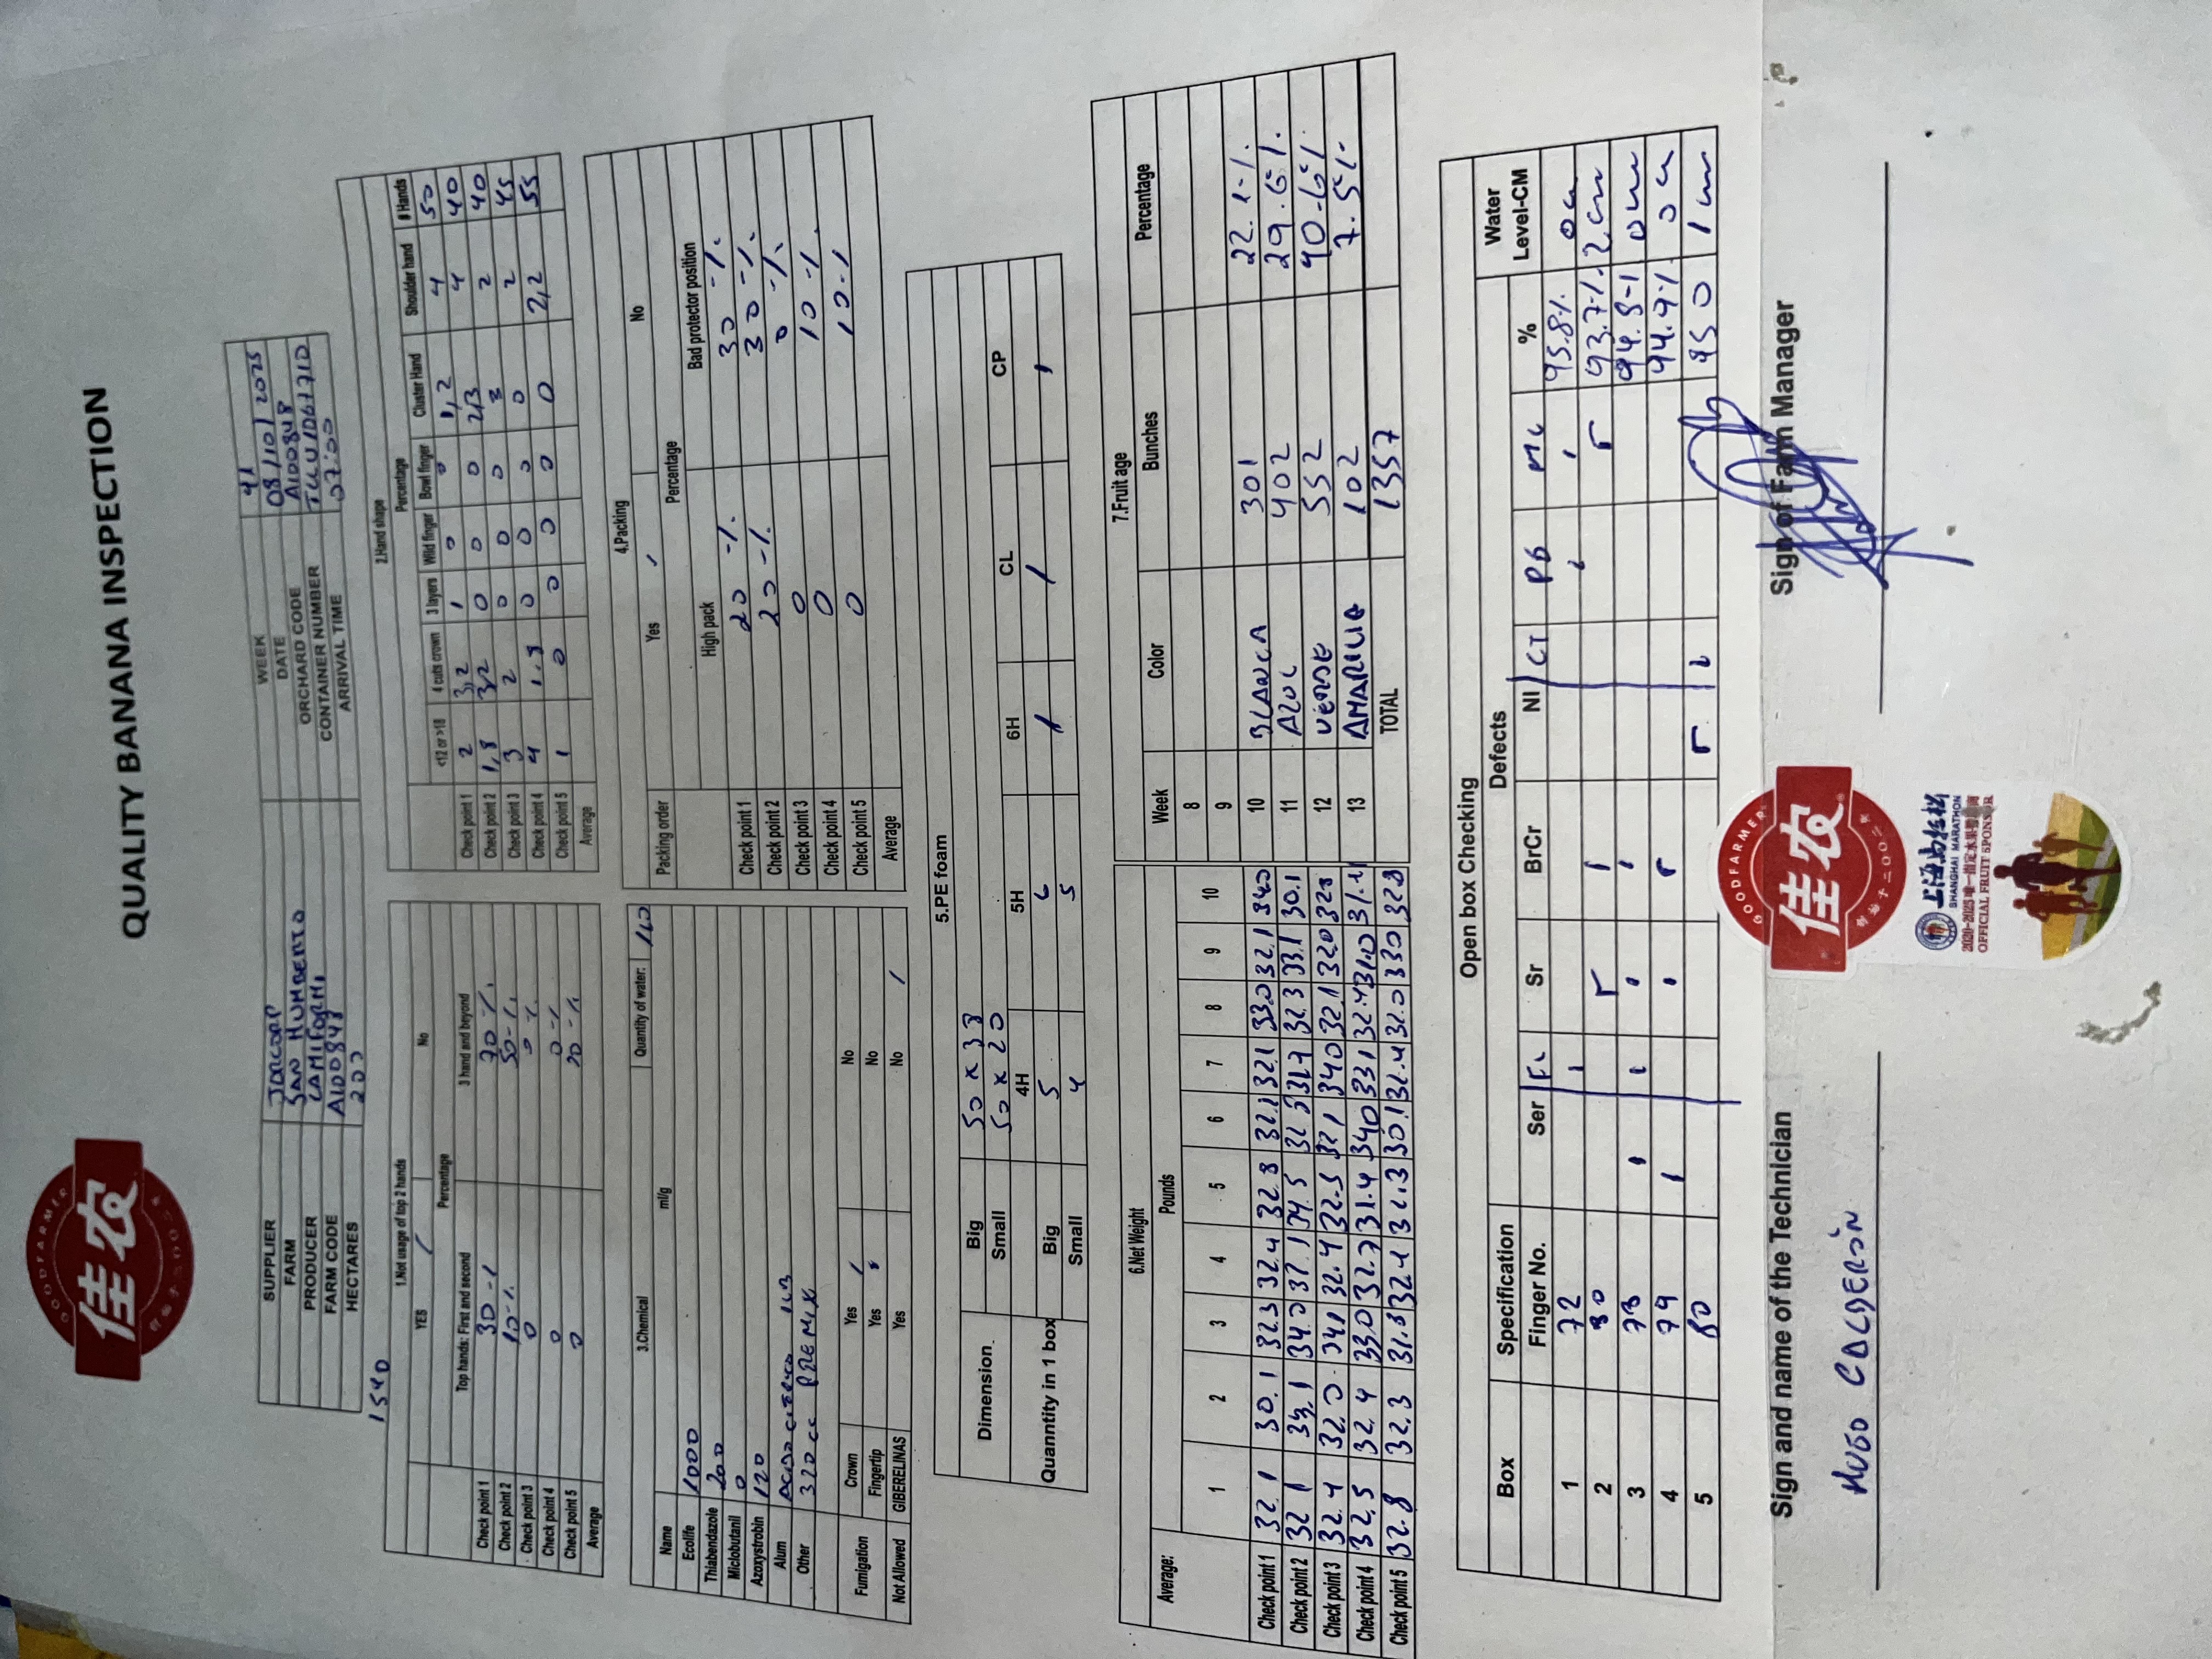 GOODFARMER
佳农
创始于二〇〇二年
QUALITY BANANA INSPECTION
SUPPLIER JORCORP WEEK 41
FARM SAN HUMBERTO DATE 08/10/2025
PRODUCER CAMIFORMI ORCHARD CODE A100848
FARM CODE A100848 CONTAINER NUMBER
HECTARES 200 ARRIVAL TIME 07:00
1540
1.Not usage of top 2 hands
YES / No
Percentage
Top hands: First and second 3 hand and beyond
Check point 1 30 % 70 %
Check point 2 10 % 50 %
Check point 3 0 0 %
Check point 4 0 0 %
Check point 5 0 20 %
Average
2.Hand shape
Percentage
<12 or >18 4 cuts crown 3 layers Wild finger Bowl finger Cluster Hand Shoulder hand # Hands
Check point 1 2 3,2 1 0 0 1,2 4 50
Check point 2 1,8 3,2 0 0 0 2,3 4 40
Check point 3 3 2 0 0 0 3 2 40
Check point 4 4 1.8 0 0 0 0 2 45
Check point 5 1 0 0 0 0 0 2,2 55
Average
3.Chemical Quantity of water:
Name ml/g
Ecolife 1000
Thiabendazole 200
Miclobutanil 0
Azoxystrobin 120
Alum ACIDO CITRICO
Other 320 cc PREMIX
Fumigation Crown Yes / No
Fingertip Yes No
Not Allowed GIBERELINAS Yes No /
4.Packing
Packing order Yes / No
Percentage
High pack Bad protector position
Check point 1 20 % 30 %
Check point 2 20 % 30 %
Check point 3 0 0 %
Check point 4 0 10 %
Check point 5 0 10 %
Average
5.PE foam
Dimension Big 50 x 38
Small 50 x 20
4H 5H 6H CL CP
Quanntity in 1 box Big 5 6 / / /
Small 4 5
6.Net Weight
Average: Pounds
1 2 3 4 5 6 7 8 9 10
Check point 1 32.1 30.1 32.3 32.4 32.8 32.1 32.1 33.0 32.1 34.0
Check point 2 32.1 33.1 34.0 34.5 32.3 33.1 30.1
Check point 3 32.4 32.0 34.1 32.4 32.5 32.1 34.0 32.1 32.0
Check point 4 32.5 32.4 33.0 32.7 31.4 34.0 33.1 32.4 31.0 31.1
Check point 5 32.8 32.3 31.8 32.1 30.1 32.0 33.0 32.8
7.Fruit age
Week Color Bunches Percentage
8
9
10 BLANCA 301 22.1 %
11 AZUL 402 29.6 %
12 VERDE 552 40.6 %
13 AMARILLA 102 7.5 %
TOTAL 1357
Open box Checking
Box Specification Defects Water
Finger No. Ser FL Sr BrCr NI CT PB MC % Level-CM
1 72 95.8 %
2 80 93.7 % 2 cm
3 78 94.8 %
4 79 94.9 %
5 80 95 0 1 cm
Sign and name of the Technician
Sign of Farm Manager
HUGO CALDERÓN
GOODFARMER
佳农
创始于二〇〇二年
上海马拉松
SHANGHAI MARATHON
OFFICIAL FRUIT SPONSOR